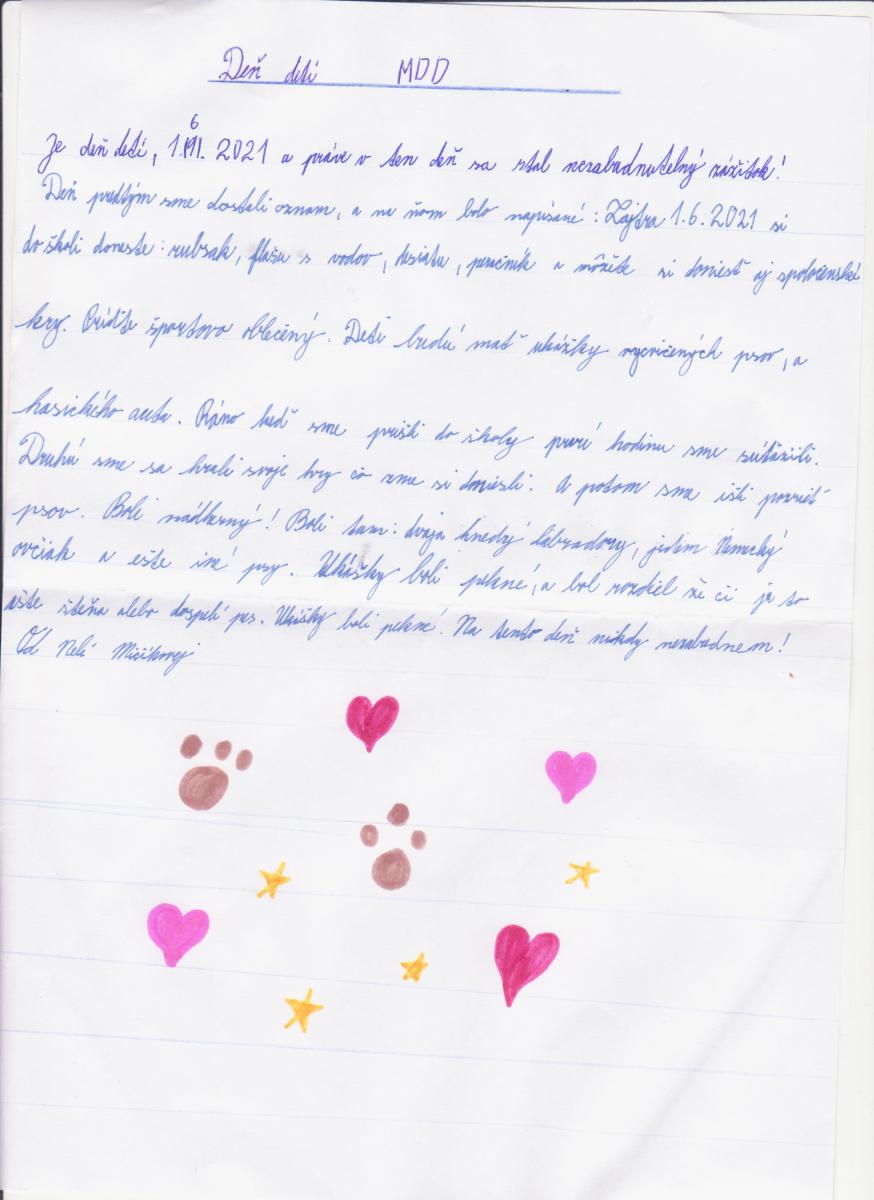 Deň detí MDD
6
Je deň detí, 1. 2021 a práve v ten deň sa stal nezabudnutelný zážitok!
Deň predtým sme dostali oznam, a na ňom bolo napísané: Zajtra 1.6.2021 si
do školi doneste: rubsak, flašu s vodov, desiatu, peračník a môžete si doniesť aj spoločenské
hry. Príďte športovo oblečený. Deti budú mať ukážky vycvičených psov, a
hasického auta. Ráno keď sme prišli do školy prvú hodinu sme súťažili.
Druhú sme sa hrali svoje hry čo sme si doniesli. A potom sme išli pozrieť
psov. Boli nádherný! Boli tam: dvaja hnedý labradory, jeden Nemecký
ovčiak a ešte iné psy. Ukášky boli pekné, a bol rozdiel že či je to
ešte šteňa alebo dospelí pes. Ukášky boli pekné! Na tento deň nikdy nezabudnem!
Od Neli Mičíkovej